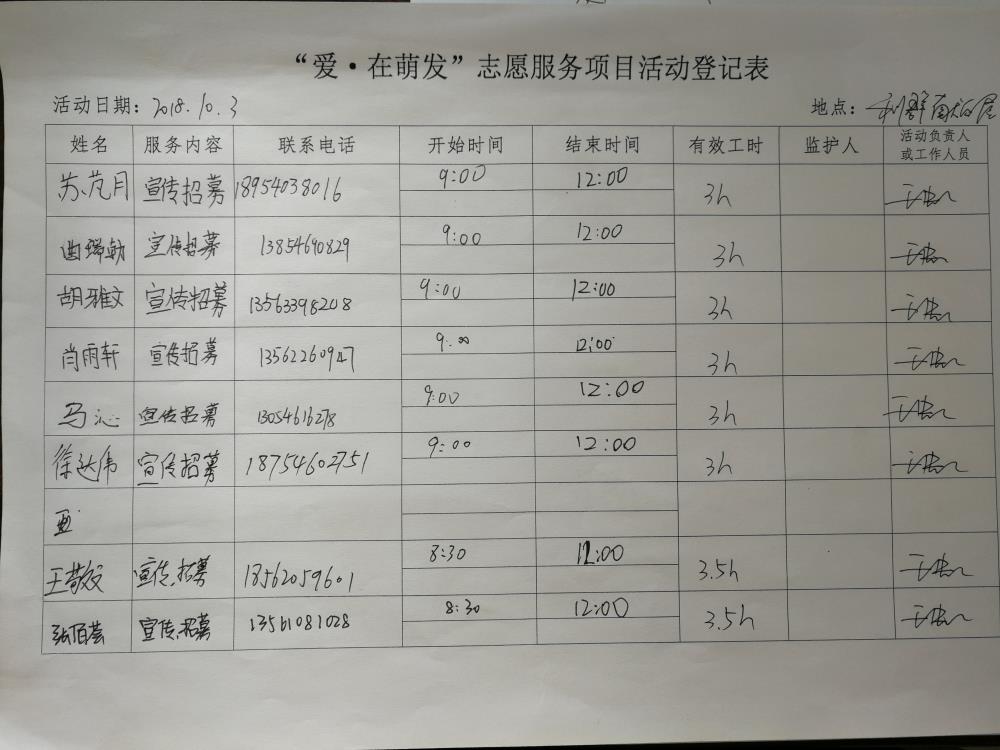 “爱·在萌发”志愿服务项目活动登记表
活动日期：2018.10.3 地点：利群
姓名 服务内容 联系电话 开始时间 结束时间 有效工时 监护人 活动负责人或工作人员
苏芃月 宣传招募 18954038016 9:00 12:00 3h
曲瑞勃 宣传招募 13854690829 9:00 12:00 3h
胡雅文 宣传招募 13563398208 9:00 12:00 3h
肖雨轩 宣传招募 13562260947 9:00 12:00 3h
马沁 宣传招募 13054616278 9:00 12:00 3h
徐达伟 宣传招募 18754602751 9:00 12:00 3h
王敬 宣传招募 18562059601 8:30 12:00 3.5h
张佰荟 宣传招募 13561081028 8:30 12:00 3.5h